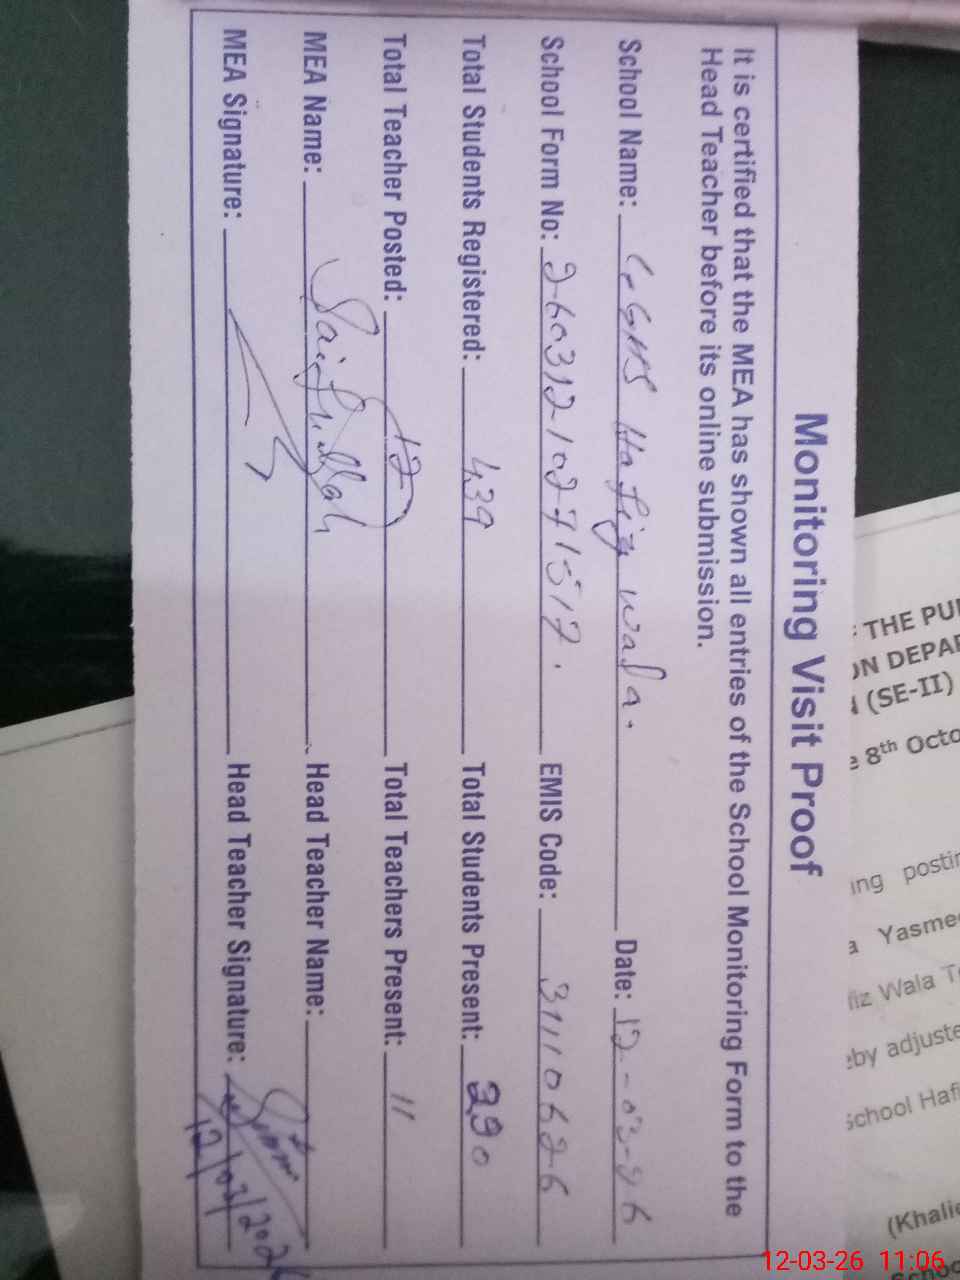 Monitoring Visit Proof
It is certified that the MEA has shown all entries of the School Monitoring Form to the
Head Teacher before its online submission.
School Name: GGHS Hafiz wala. Date: 12-03-26
School Form No: 26031210271517. EMIS Code: 31110626
Total Students Registered: 439 Total Students Present: 290
Total Teacher Posted: 12 Total Teachers Present: 11
MEA Name: Saifullah Head Teacher Name:
MEA Signature: Head Teacher Signature:
12/03/2026
THE PUN
ON DEPAR
(SE-II)
8th Octo
ing postin
a Yasmee
fiz Wala T
eby adjuste
School Hafi
(Khalie
Schoo
12-03-26 11:06